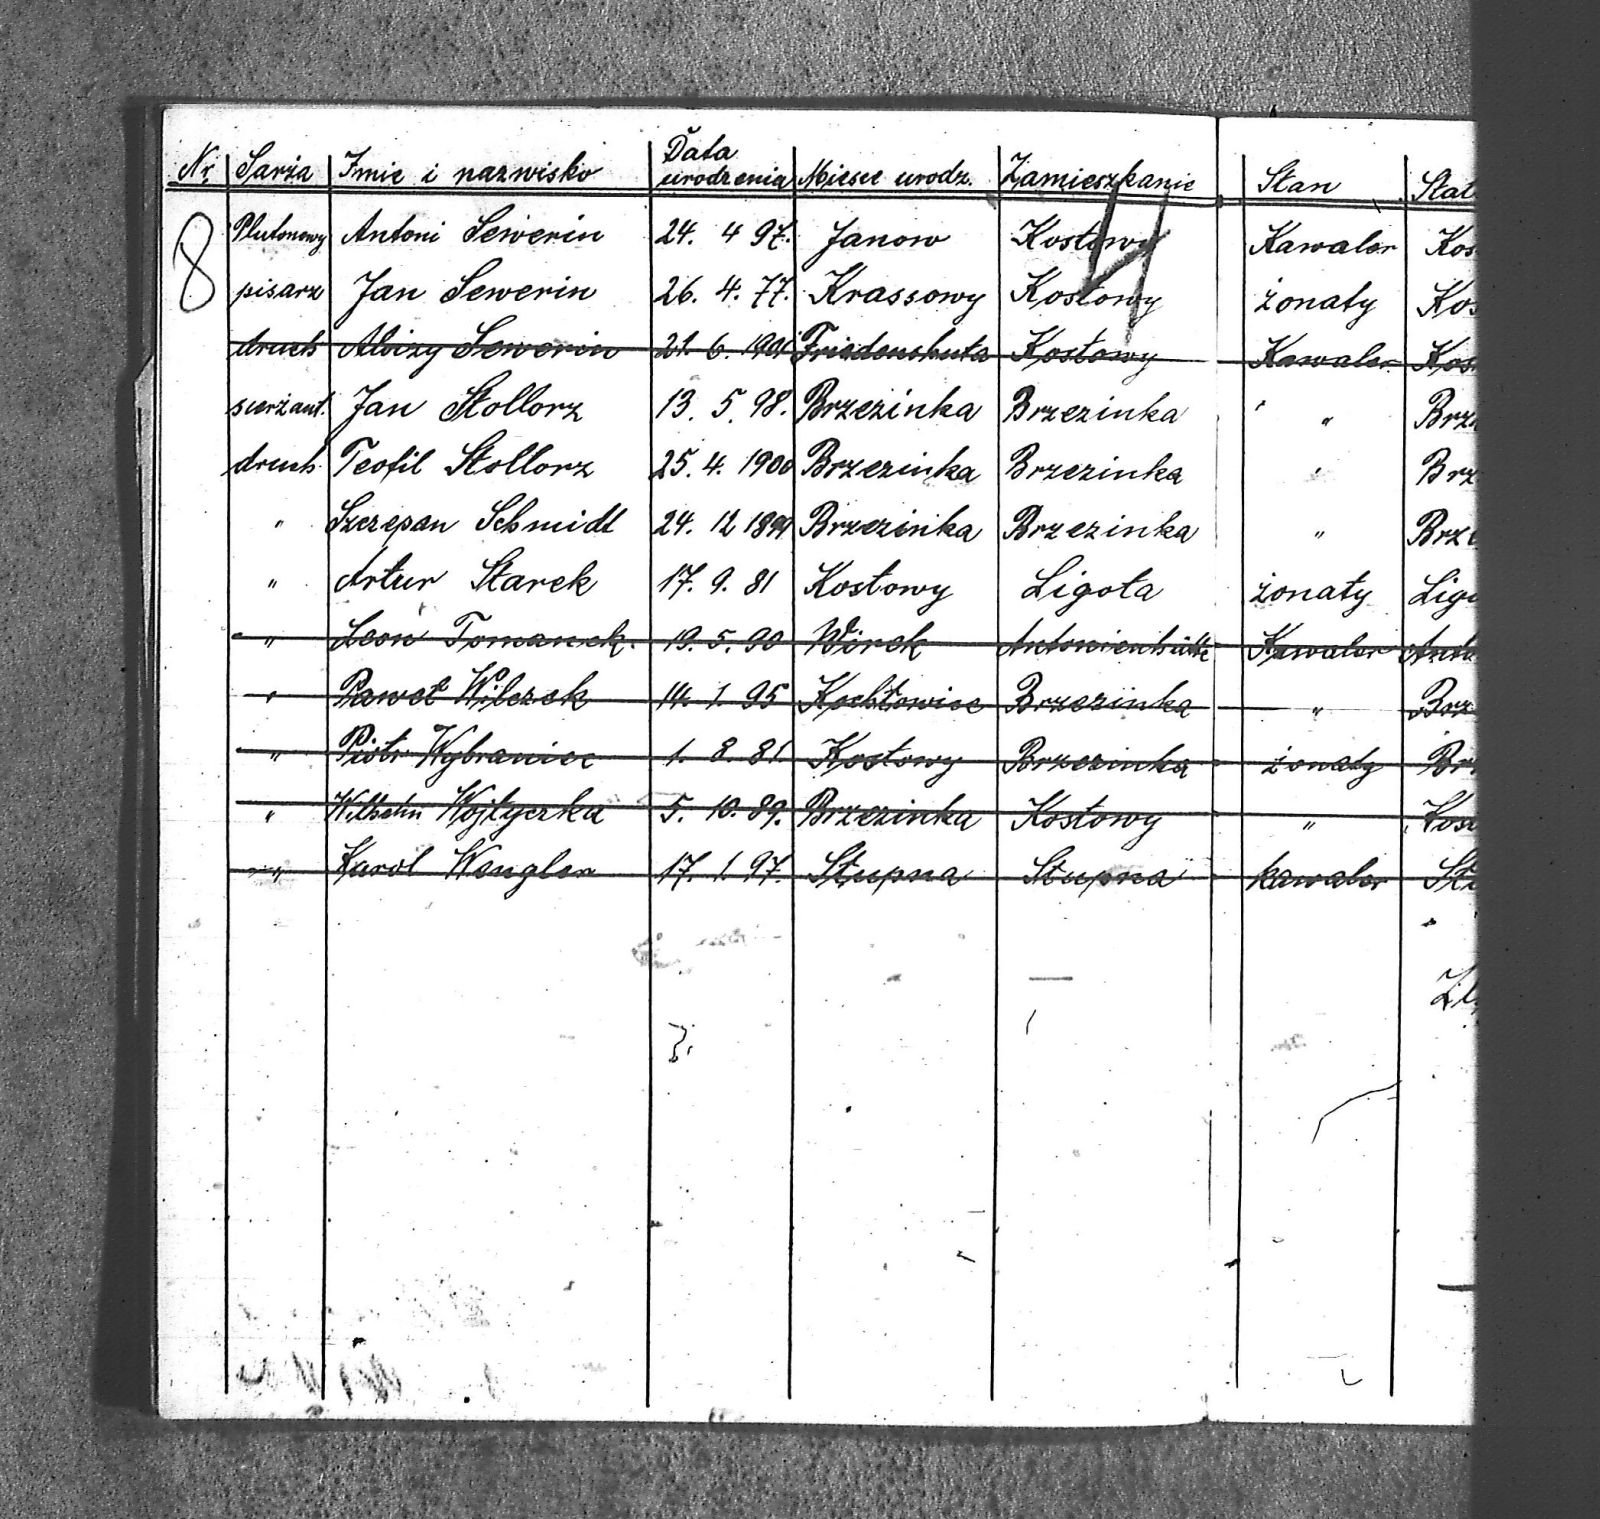 Nr. Sarża Imie i nazwisko Data urodzenia Miesce urodz. Zamieszkanie Stan Stał
8 Plutonowy Antoni Sewerin 24. 4 97. Janow Kostowy Kawaler Kos
pisarz Jan Sewerin 26. 4. 77. Krassowy Kostowy żonaty Kos
druch Aloizy Sewerin 21. 6. 1901 Friedenshuta Kostowy Kawaler Kos
sierżant. Jan Stollorz 13. 5. 98. Brzezinka Brzezinka " Brz
druch. Teofil Stollorz 25. 4. 1900 Brzezinka Brzezinka " Brz
" Szczepan Schmidt 24. 12 Brzezinka Brzezinka " Brze
" Artur Starek 17. 9. 81 Kostowy Ligota żonaty Lig
" Leon Tomanek. 19. 5. 90 Wirek Antonienhütte Kawaler Ant
" Paweł Wilczek 14. 1. 95 Kochłowice Brzezinka " Brz
" Piotr Wybraniec 1. 8. 81. Kostowy Brzezinka żonaty Br
" Wilhelm Wojtyczka 5. 10. 89. Brzezinka Kostowy " Kos
" Karol Wengler 17. 1. 97. Słupna Słupna kawaler Sł